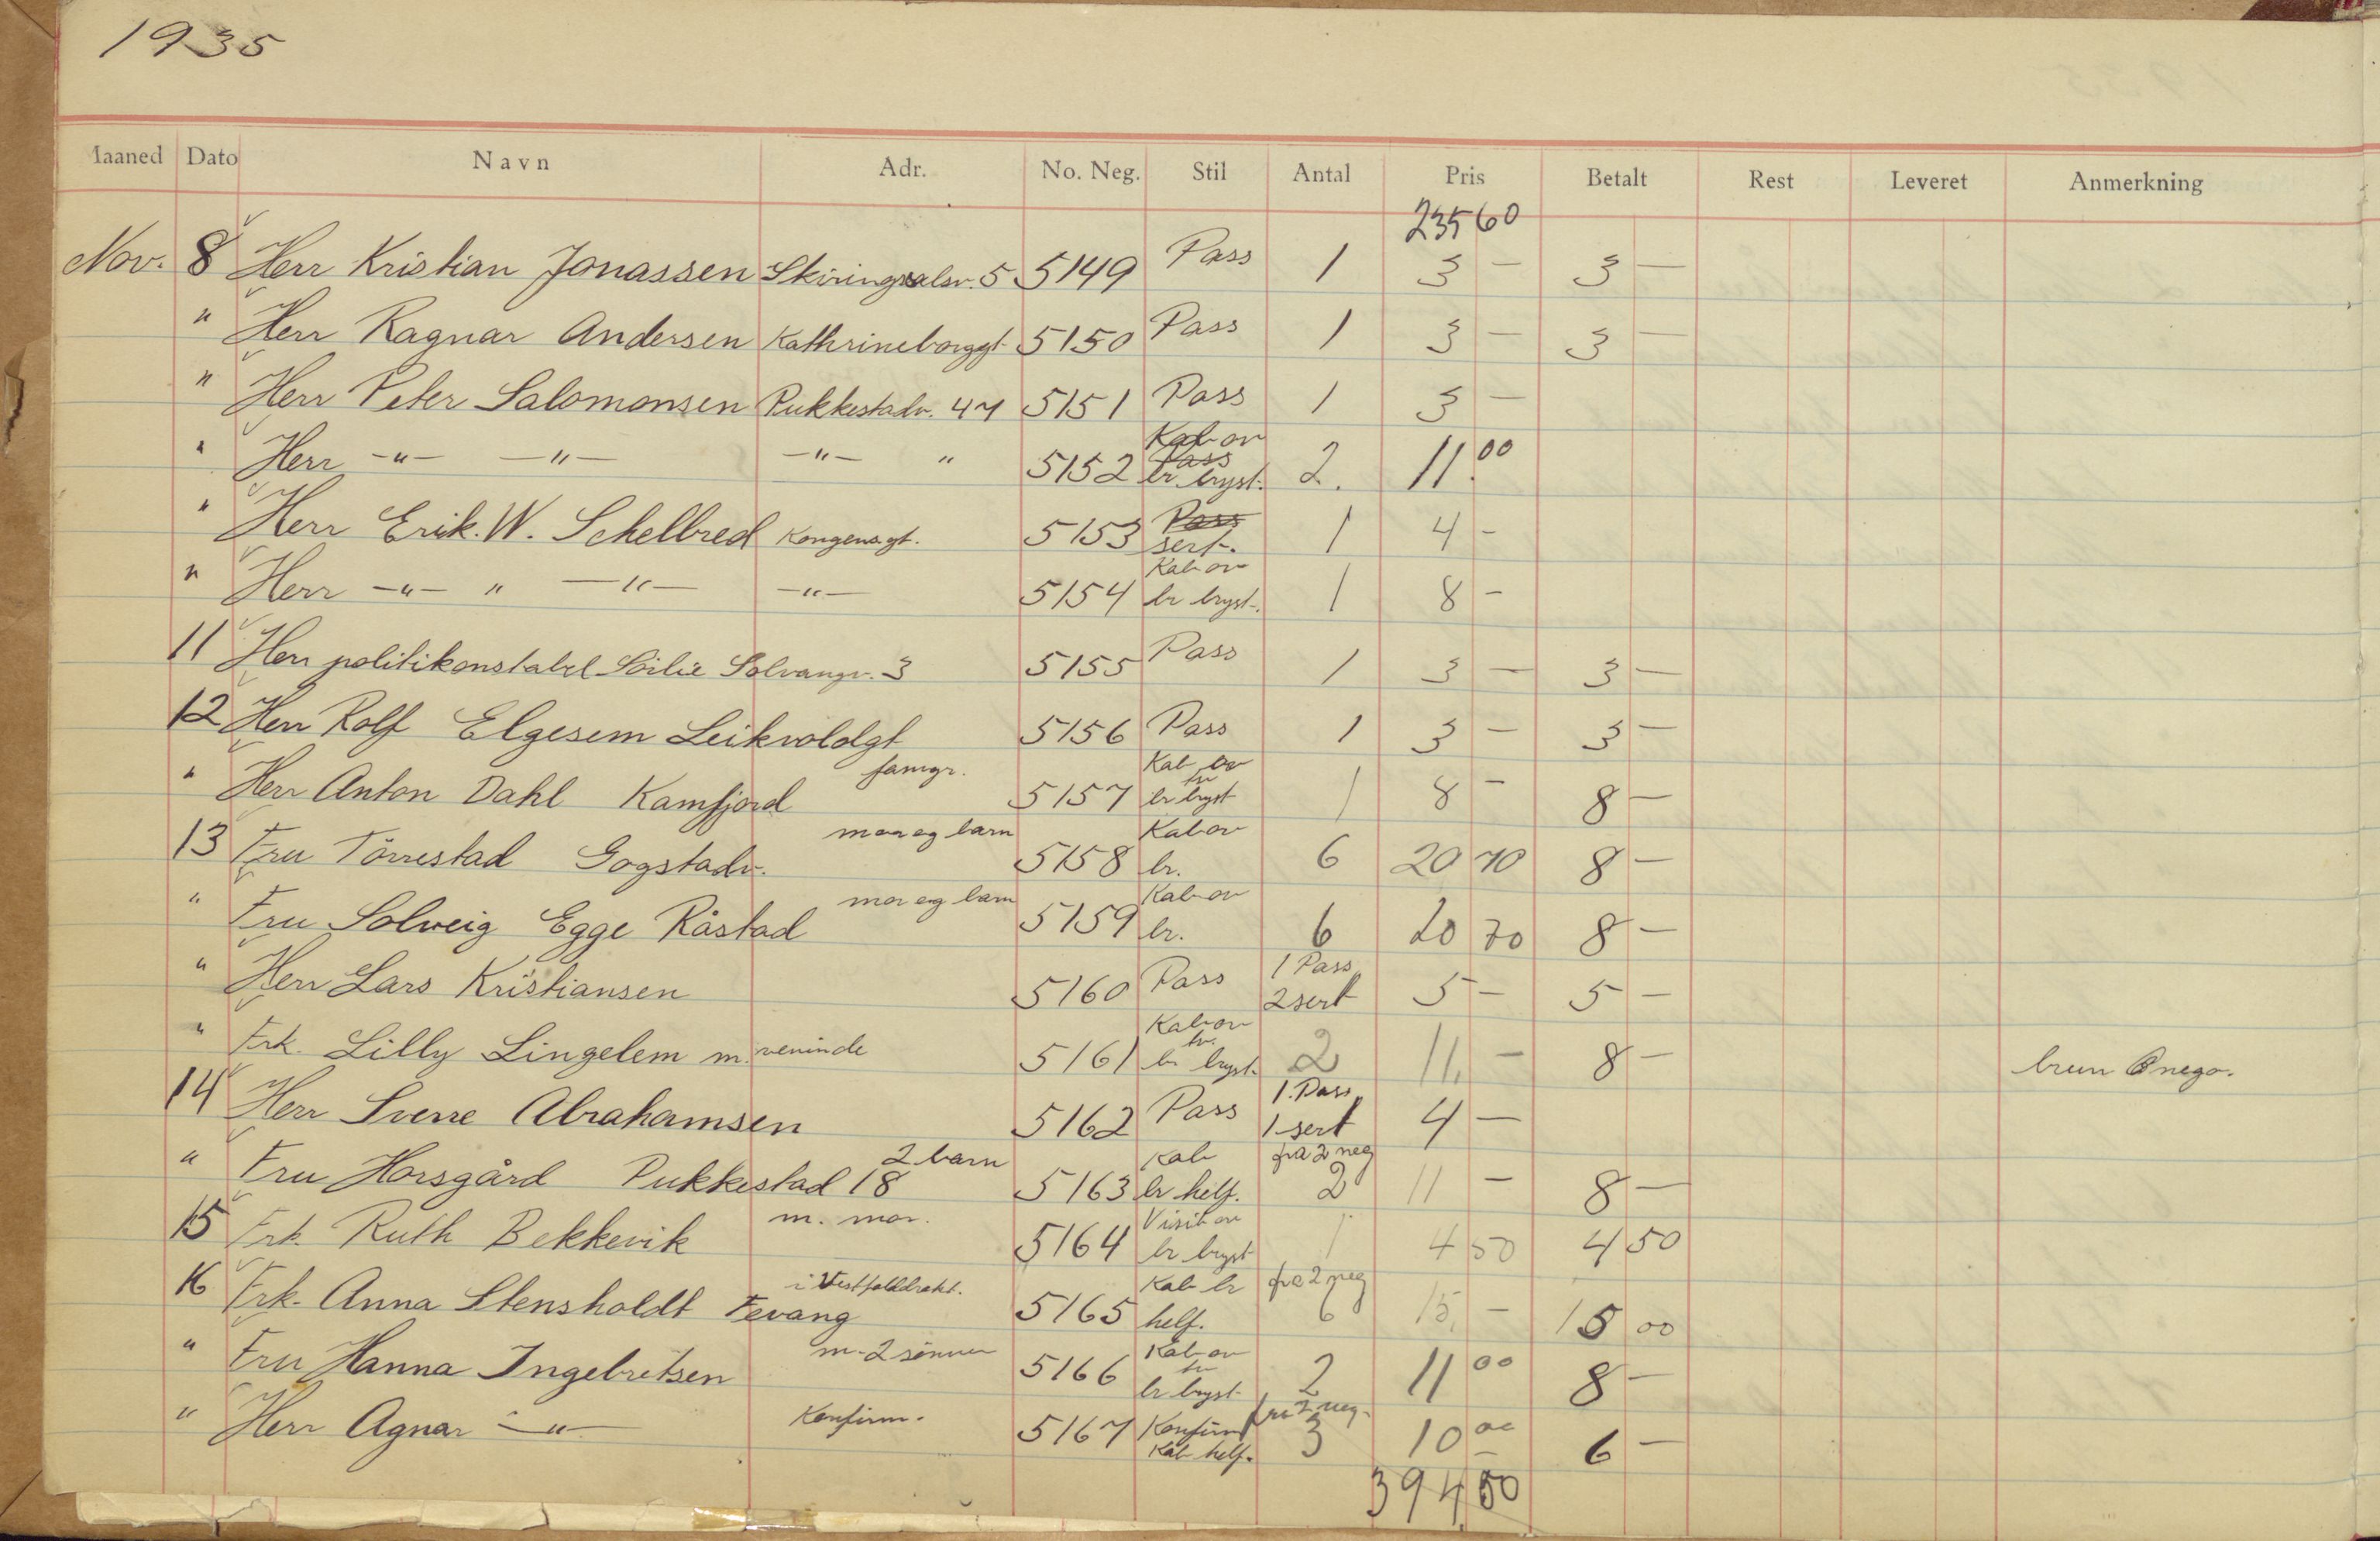 1935
Maaned Dato Navn Adr. No. Neg. Stil Antal Pris Betalt Rest Leveret Anmerkning
235 60
Nov. 8 Herr Kristian Jonassen Skiringssalsv. 5 5149 Pass 1 3 — 3 —
" Herr Ragnar Andersen Kathrineborggt. 5150 Pass 1 3 — 3 —
" Herr Peter Salomonsen Pukkestadv. 47 5151 Pass 1 3 —
" Herr -"- -"- -"- " 5152 Kab ov Pass br bryst. 2. 11.00
" Herr Erik. W. Schelbred Kongensgt. 5153 Pass sert. 1 4 -
" Herr -"- " -"- -"- 5154 Kab ov br bryst. 1 8 -
11 Herr politikonstabel Sörlie Solvangv. 3 5155 Pass 1 3 — 3 —
12 Herr Rolf Elgesem Leikvoldgt 5156 Pass 1 3 — 3 —
" Herr Anton Dahl Kamfjord famgr. 5157 Kab ov tv br bryst 1 8 - 8 —
13 Fru Törrestad Gogstadv. mor og barn 5158 Kab ov br. 6 20 70 8 —
" Fru Solveig Egge Råstad mor og barn 5159 Kab ov br. 6 20 70 8 —
" Herr Lars Kristiansen 5160 Pass 1 Pass 2 sert 5 — 5 —
" Frk. Lilly Lingelem m. veninde 5161 Kab ov tv. br bryst. 2 11, — 8 — brun nega.
14 Herr Sverre Abrahamsen 5162 Pass 1. Pass 1 sert 4 —
" Fru Horsgård Pukkestad 18 2 barn 5163 Kab br helf. fra 2 neg 2 11 — 8 —
15 Frk. Ruth Bekkevik m. mor. 5164 Visit ov br bryst 1 4 50 4 50
16 Frk. Anna Stensholdt Fevang i Vestfolddrakt. 5165 Kab br helf. fra 2 neg 6 15, — 15 00
" Fru Hanna Ingebretsen m. 2 sönner 5166 Kab ov tv br bryst 2 11 00 8 —
" Herr Agnar -"- Konfirm. 5167 Konfirm Kab helf. fra 2 neg. 3 10 00 6 —
394,50